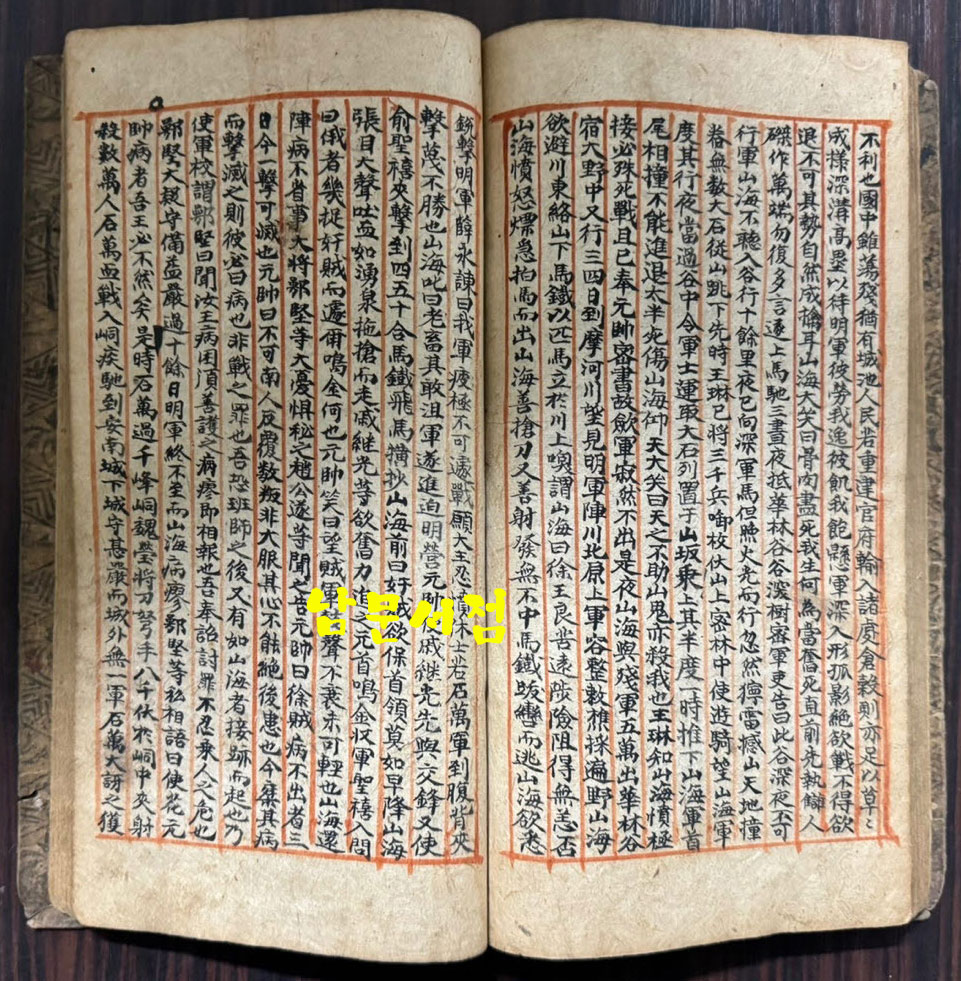 不利也國中雖蕩殘猶有城池人民若重建官府輸入諸處倉穀則亦足以草
成樣深溝高壘以待明軍彼勞我逸彼飢我飽懸軍深入形孤影絶欲戰不得欲
退不可其勢自然成擒耳山海大笑曰骨肉盡死我生何為當奮死直前先執獜人
磔作萬端勿復多言遂上馬馳三晝夜抵華林谷谷深樹密軍吏告曰此谷深夜不可
行軍山海不聽入谷行十餘里夜已向深軍馬但照火光而行忽然霹雷撼山天地撞
眷無數大石從山跳下先時王琳已將三千兵啣枚伏山上密林中使遊騎望山海軍
度其行夜當過谷中令軍士運取大石列置于山坂乘上其半度一時推下山海軍首
尾相撞不能進退太半死傷山海仰天大笑曰天之不助山鬼亦殺我也王琳知山海憤極
接必殊死戰且已奉元帥密書故歛軍寂然不出是夜山海與殘軍五萬出華林谷
宿穴野中又行三四日到摩河川望見明軍陣川北原上軍容整敕樵採遍野山海
欲避川東絡山下馬鐵以匹馬立於川上喚謂山海曰徐王良苦遠陟險阻得無恙否
山海憤怒慓急拍馬而出山海善槍刀又善射發無不中馬鐵皈轡而逃山海欲悉
銳擊明軍薛永諫曰我軍疲極不可遽戰願大王忍休士若石萬軍到腹背夾
擊蔑不勝也山海叱曰老畜其敢沮軍遂進迫明營元帥使戚継光先與交鋒又使
俞聖禧夾擊到四五十合馬鐵飛馬橫抄山海前曰奸賊欲保首領莫如早降山海
張目大聲吐血如湧泉拖槍而走戚継光等欲奮力追之元首鳴金收軍聖禧入問
曰俄者幾捉奸賊而遽爾鳴金何也元帥笑曰望賊軍聲不衰未可輕也山海還
陣病不省事大將鄒堅等大憂惧秘之趙公遂等聞之告元帥曰徐賊病不出者三
日今一擊可滅也元帥曰不可南人反覆数叛非大服其心不能絶後患也今乘其病
而擊滅之則彼必曰病也非戰之罪也吾恐班師之後又有如山海者接跡而起也乃
使軍校謂鄒堅曰聞汝王病困湏善護之病瘳即相報也吾奉詔討罪不忍乘人之危也
鄒堅大叕守備益嚴過十餘日明軍終不至而山海病瘳鄒堅等私相語曰使花元
帥病者吾王必不然矣是時石萬過千峰峒魏瑩將刀弩手八千伏於峒中夾射
殺數萬人石萬血戰入峒疾馳到安南城下城守甚嚴而城外無一軍石萬大訝之獲
남문서점